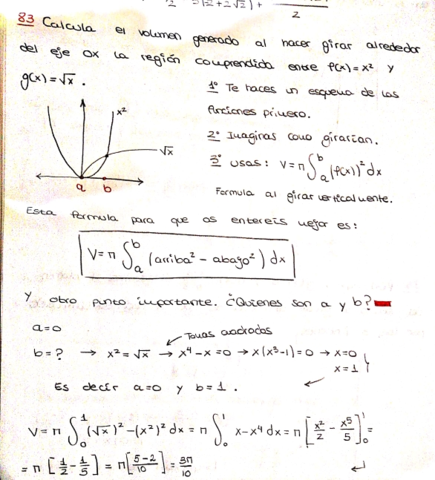 83 Calcula el volumen generado al hacer girar alrededor
del eje OX la región comprendida entre f(x)=x² y
g(x)=√x.
1º Te haces un esquema de las
funciones primero.
2º Imaginas como girarían.
3º usas: V=π∫ₐᵇ(f(x))²dx
Formula al girar verticalmente.
x²
√x
a b
Esta fórmula para que os entereis mejor es:
V=π∫ₐᵇ(arriba²-abajo²)dx
Y otro punto importante. ¿Quienes son a y b?
Tomas cuadrados
a=0
b=? → x²=√x → x⁴-x=0 → x(x³-1)=0 → x=0
x=1
Es decir a=0 y b=1.
V=π∫₀¹(√x)²-(x²)²dx=π∫₀¹x-x⁴dx=π[x²/2-x⁵/5]₀¹=
=π[1/2-1/5]=π[5-2/10]=3π/10